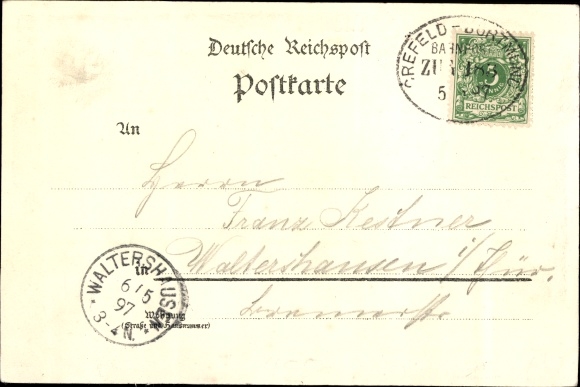 Deutsche Reichspost
Postkarte
CREFELD - DORTMUND
BAHNPOST
ZUG
5 97
3
REICHSPOST
An
Herrn
Franz Kestner
in
Waltershausen i/Thür.
Wohnung
(Straße und Hausnummer)
WALTERSHAUSEN
6/5
97
3-4 N.